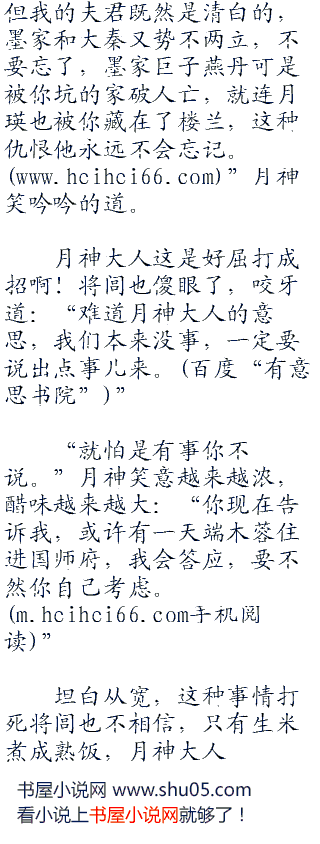 但我的夫君既然是清白的，
墨家和大秦又势不两立，不
要忘了，墨家巨子燕丹可是
被你坑的家破人亡，就连月
瑛也被你藏在了楼兰，这种
仇恨他永远不会忘记。
(www.hcihci66.com)”月神
笑吟吟的道。
月神大人这是好屈打成
招啊！将闾也傻眼了，咬牙
道：“难道月神大人的意
思，我们本来没事，一定要
说出点事儿来。(百度“有意
思书院”)”
“就怕是有事你不
说。”月神笑意越来越浓，
醋味越来越大：“你现在告
诉我，或许有一天端木蓉住
进国师府，我会答应，要不
然你自己考虑。
(m.hcihci66.com手机阅
读)”
坦白从宽，这种事情打
死将闾也不相信，只有生米
煮成熟饭，月神大人
书屋小说网 www.shu05.com
看小说上书屋小说网就够了！